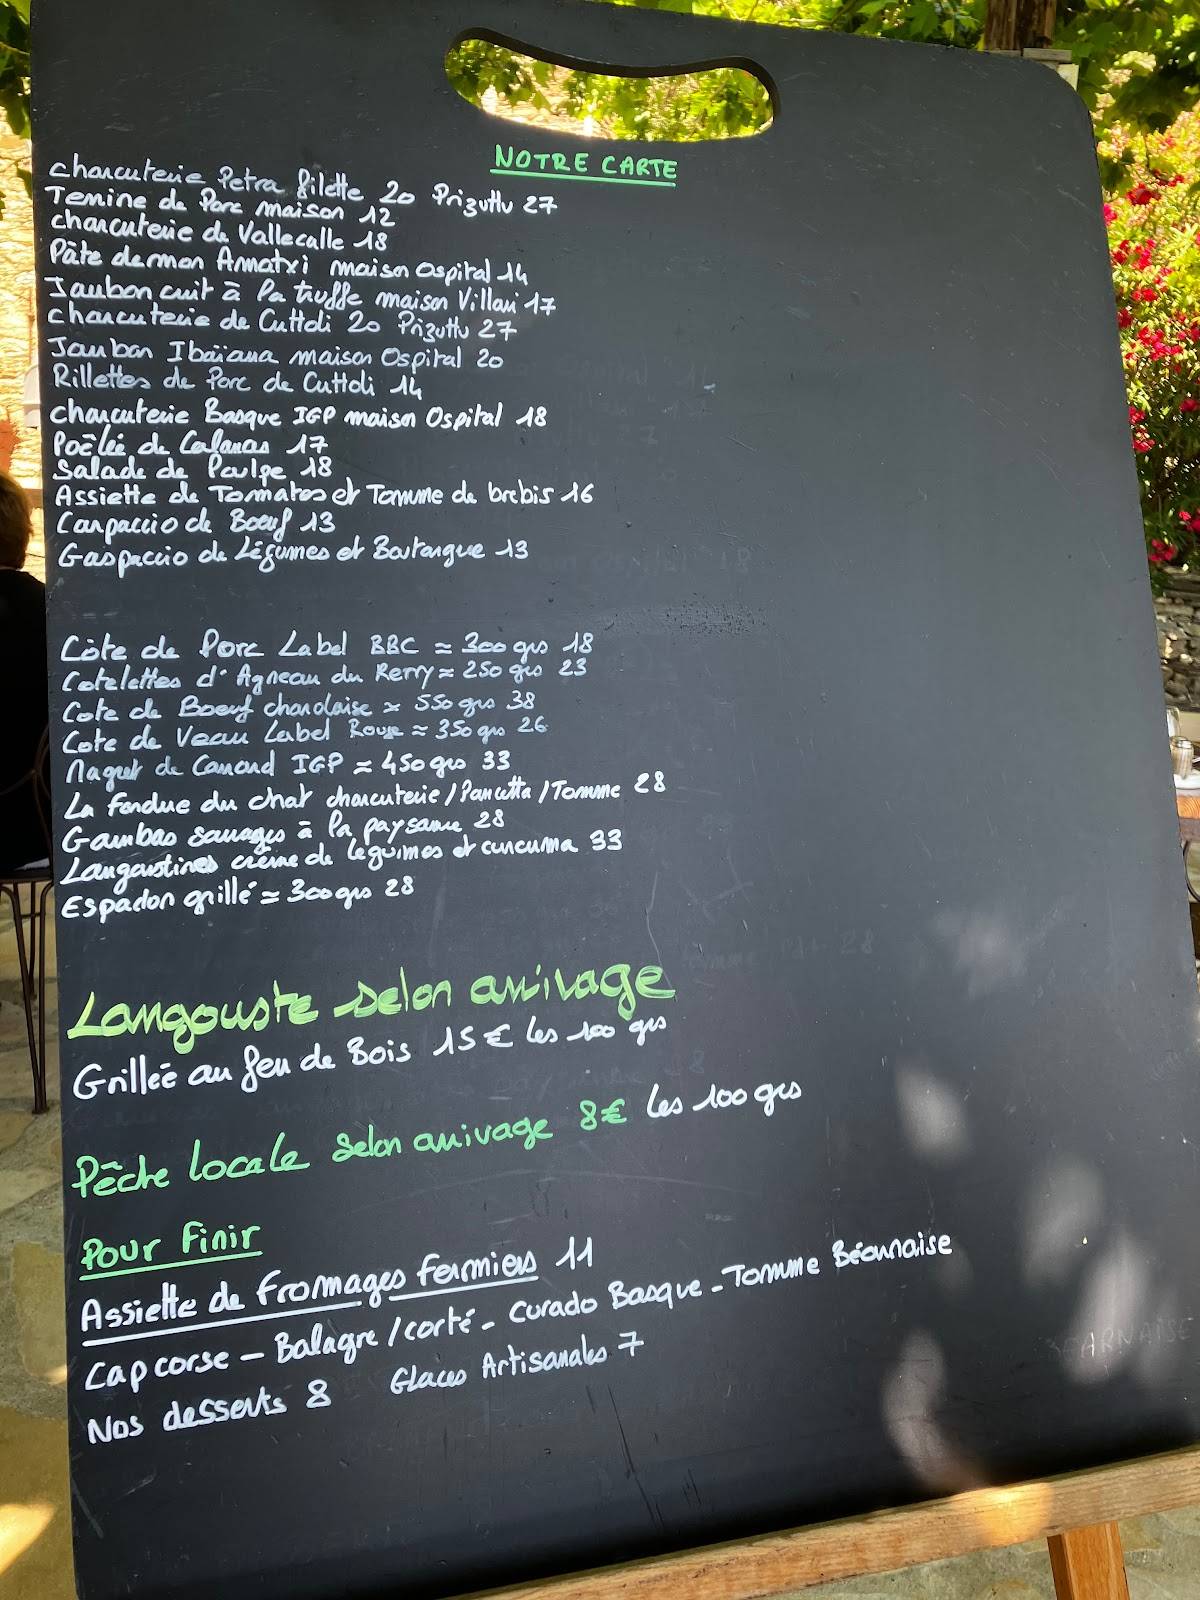 NOTRE CARTE
charcuterie Petra filette 20 Prizuttu 27
Terrine de Porc maison 12
charcuterie de Vallecalle 18
Pâte de mon Amatxi maison Ospital 14
Jambon cuit à la truffe maison Villani 17
charcuterie de Cuttoli 20 Prizuttu 27
Jambon Ibaïana maison Ospital 20
Rillettes de Porc de Cuttoli 14
charcuterie Basque IGP maison Ospital 18
Poêlée de Calamas 17
Salade de Poulpe 18
Assiette de Tomates et Tomme de brebis 16
Carpaccio de Boeuf 13
Gaspaccio de Légumes et Boutargue 13
Côte de Porc Label BBC ≈ 300 grs 18
Cotelettes d'Agneau du Berry ≈ 250 grs 23
Cote de Boeuf charolaise ≈ 550 grs 38
Cote de Veau Label Rouge ≈ 350 grs 26
Magret de Canard IGP ≈ 450 grs 33
La fondue du chat charcuterie / Pancetta / Tomme 28
Gambas sauvages à la paysanne 28
Langoustines crème de légumes et curcuma 33
Espadon grillé ≈ 300 grs 28
Langouste selon arrivage
Grillée au feu de Bois 15 € les 100 grs
Pêche locale selon arrivage 8€ les 100 grs
Pour Finir
Assiette de fromages fermiers 11
Cap corse - Balagne / corté - Curado Basque - Tomme Béarnaise
Nos desserts 8 Glaces Artisanales 7